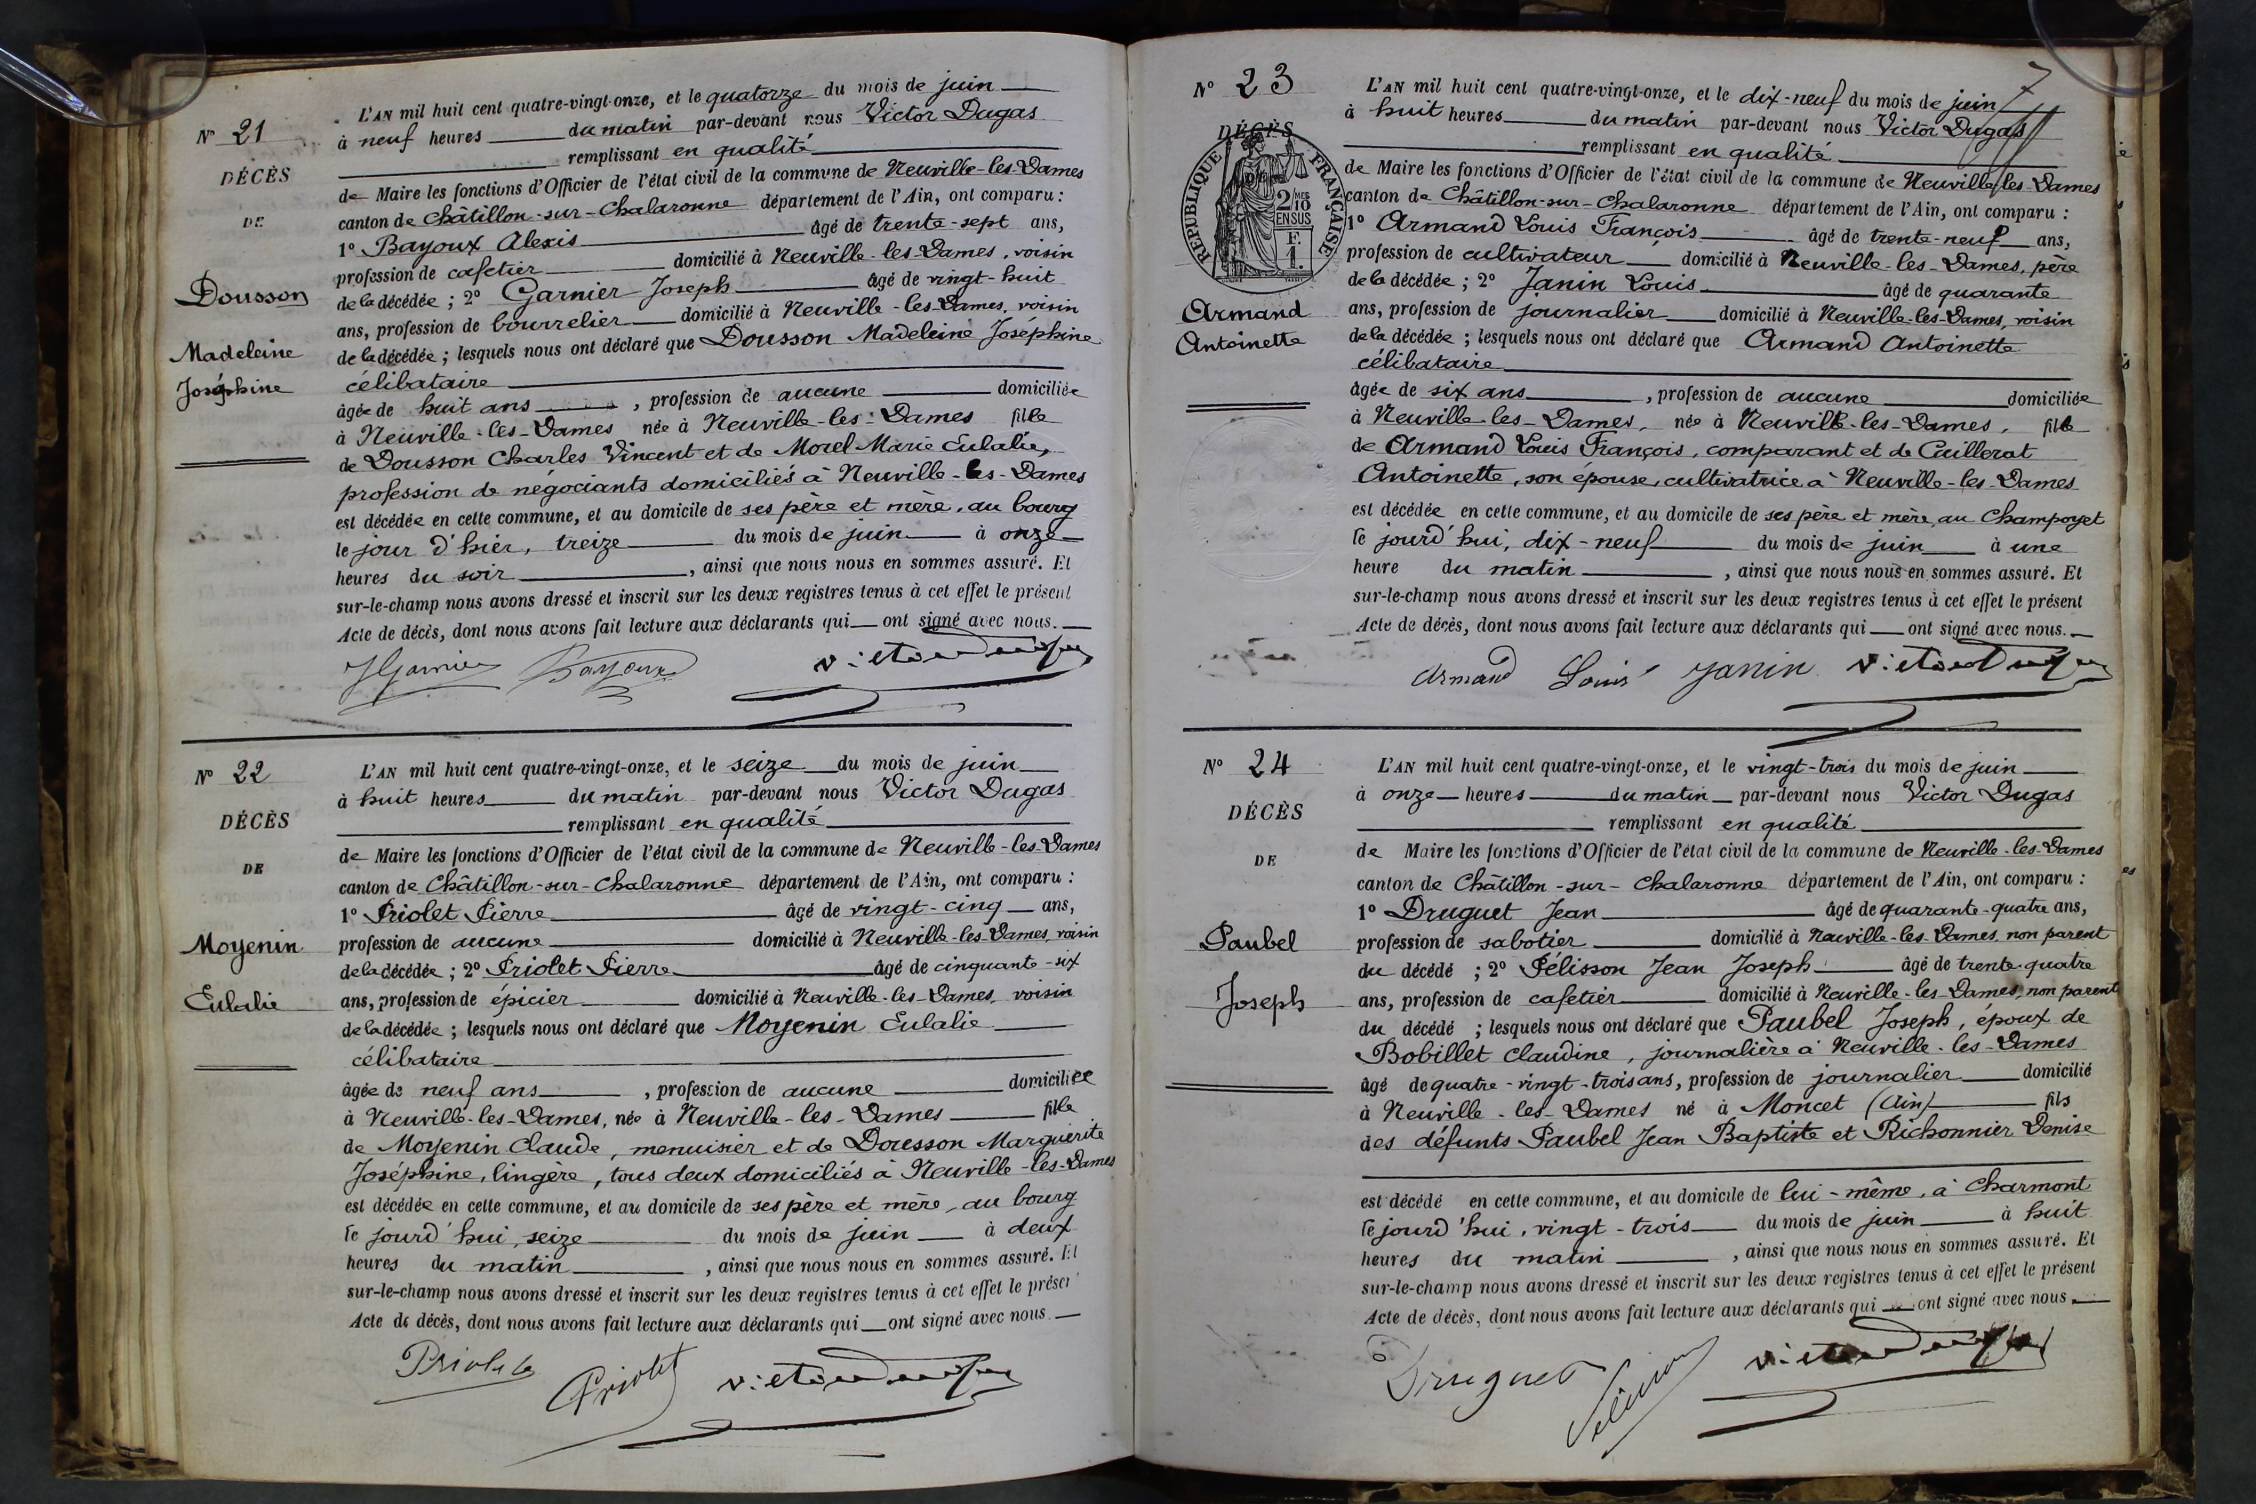 N° 21
DÉCÈS
DE
Dousson
Madeleine
Joséphine
L'AN mil huit cent quatre-vingt-onze, et le quatorze du mois de juin
à neuf heures du matin par-devant nous Victor Dugas
remplissant en qualité
de Maire les fonctions d'Officier de l'état civil de la commune de Neuville-les-Dames
canton de Châtillon-sur-Chalaronne département de l'Ain, ont comparu :
1° Bayoux Alexis âgé de trente-sept ans,
profession de cafetier domicilié à Neuville-les-Dames, voisin
de la décédée ; 2° Garnier Joseph âgé de vingt-huit
ans, profession de bourrelier domicilié à Neuville-les-Dames, voisin
de la décédée ; lesquels nous ont déclaré que Dousson Madeleine Joséphine
célibataire
âgée de huit ans, profession de aucune domiciliée
à Neuville-les-Dames née à Neuville-les-Dames fille
de Dousson Charles Vincent et de Morel Marie Eulalie,
profession de négociants domiciliés à Neuville-les-Dames
est décédée en cette commune, et au domicile de ses père et mère, au bourg
le jour d'hier, treize du mois de juin à onze
heures du soir, ainsi que nous nous en sommes assuré. Et
sur-le-champ nous avons dressé et inscrit sur les deux registres tenus à cet effet le présent
Acte de décès, dont nous avons fait lecture aux déclarants qui ont signé avec nous.
JGarnier Bayoux Victor Dugas
N° 22
DÉCÈS
DE
Moyenin
Eulalie
L'AN mil huit cent quatre-vingt-onze, et le seize du mois de juin
à huit heures du matin par-devant nous Victor Dugas
remplissant en qualité
de Maire les fonctions d'Officier de l'état civil de la commune de Neuville-les-Dames
canton de Châtillon-sur-Chalaronne département de l'Ain, ont comparu :
1° Priolet Pierre âgé de vingt-cinq ans,
profession de aucune domicilié à Neuville-les-Dames, voisin
de la décédée ; 2° Priolet Pierre âgé de cinquante-six
ans, profession de épicier domicilié à Neuville-les-Dames, voisin
de la décédée ; lesquels nous ont déclaré que Moyenin Eulalie
célibataire
âgée de neuf ans, profession de aucune domiciliée
à Neuville-les-Dames, née à Neuville-les-Dames fille
de Moyenin Claude, menuisier et de Dousson Marguerite
Joséphine, lingère, tous deux domiciliés à Neuville-les-Dames
est décédée en cette commune, et au domicile de ses père et mère, au bourg
le jourd'hui, seize du mois de juin à deux
heures du matin, ainsi que nous nous en sommes assuré. Et
sur-le-champ nous avons dressé et inscrit sur les deux registres tenus à cet effet le présent
Acte de décès, dont nous avons fait lecture aux déclarants qui ont signé avec nous.
Priolet Priolet Victor Dugas
N° 23
DÉCÈS
RÉPUBLIQUE FRANÇAISE
2 MES 10 EN SUS
F. 1.
Armand
Antoinette
7
L'AN mil huit cent quatre-vingt-onze, et le dix-neuf du mois de juin
à huit heures du matin par-devant nous Victor Dugas
remplissant en qualité
de Maire les fonctions d'Officier de l'état civil de la commune de Neuville-les-Dames
canton de Châtillon-sur-Chalaronne département de l'Ain, ont comparu :
1° Armand Louis François âgé de trente-neuf ans,
profession de cultivateur domicilié à Neuville-les-Dames, père
de la décédée ; 2° Janin Louis âgé de quarante
ans, profession de journalier domicilié à Neuville-les-Dames, voisin
de la décédée ; lesquels nous ont déclaré que Armand Antoinette
célibataire
âgée de six ans, profession de aucune domiciliée
à Neuville-les-Dames, née à Neuville-les-Dames, fille
de Armand Louis François, comparant et de Guillerat
Antoinette, son épouse, cultivatrice à Neuville-les-Dames
est décédée en cette commune, et au domicile de ses père et mère, au Champoyet
le jourd'hui, dix-neuf du mois de juin à une
heure du matin, ainsi que nous nous en sommes assuré. Et
sur-le-champ nous avons dressé et inscrit sur les deux registres tenus à cet effet le présent
Acte de décès, dont nous avons fait lecture aux déclarants qui ont signé avec nous.
Armand Louis Janin Victor Dugas
N° 24
DÉCÈS
DE
Paubel
Joseph
L'AN mil huit cent quatre-vingt-onze, et le vingt-trois du mois de juin
à onze heures du matin par-devant nous Victor Dugas
remplissant en qualité
de Maire les fonctions d'Officier de l'état civil de la commune de Neuville-les-Dames
canton de Châtillon-sur-Chalaronne département de l'Ain, ont comparu :
1° Druguet Jean âgé de quarante-quatre ans,
profession de sabotier domicilié à Neuville-les-Dames, non parent
du décédé ; 2° Pélisson Jean Joseph âgé de trente-quatre
ans, profession de cafetier domicilié à Neuville-les-Dames, non parent
du décédé ; lesquels nous ont déclaré que Paubel Joseph, époux de
Bobillet Claudine, journalière à Neuville-les-Dames
âgé de quatre-vingt-trois ans, profession de journalier domicilié
à Neuville-les-Dames né à Moncet (Ain) fils
des défunts Paubel Jean Baptiste et Richonnier Denise
est décédé en cette commune, et au domicile de lui-même, à Charmont
le jourd'hui, vingt-trois du mois de juin à huit
heures du matin, ainsi que nous nous en sommes assuré. Et
sur-le-champ nous avons dressé et inscrit sur les deux registres tenus à cet effet le présent
Acte de décès, dont nous avons fait lecture aux déclarants qui ont signé avec nous.
Druguet Pélisson Victor Dugas